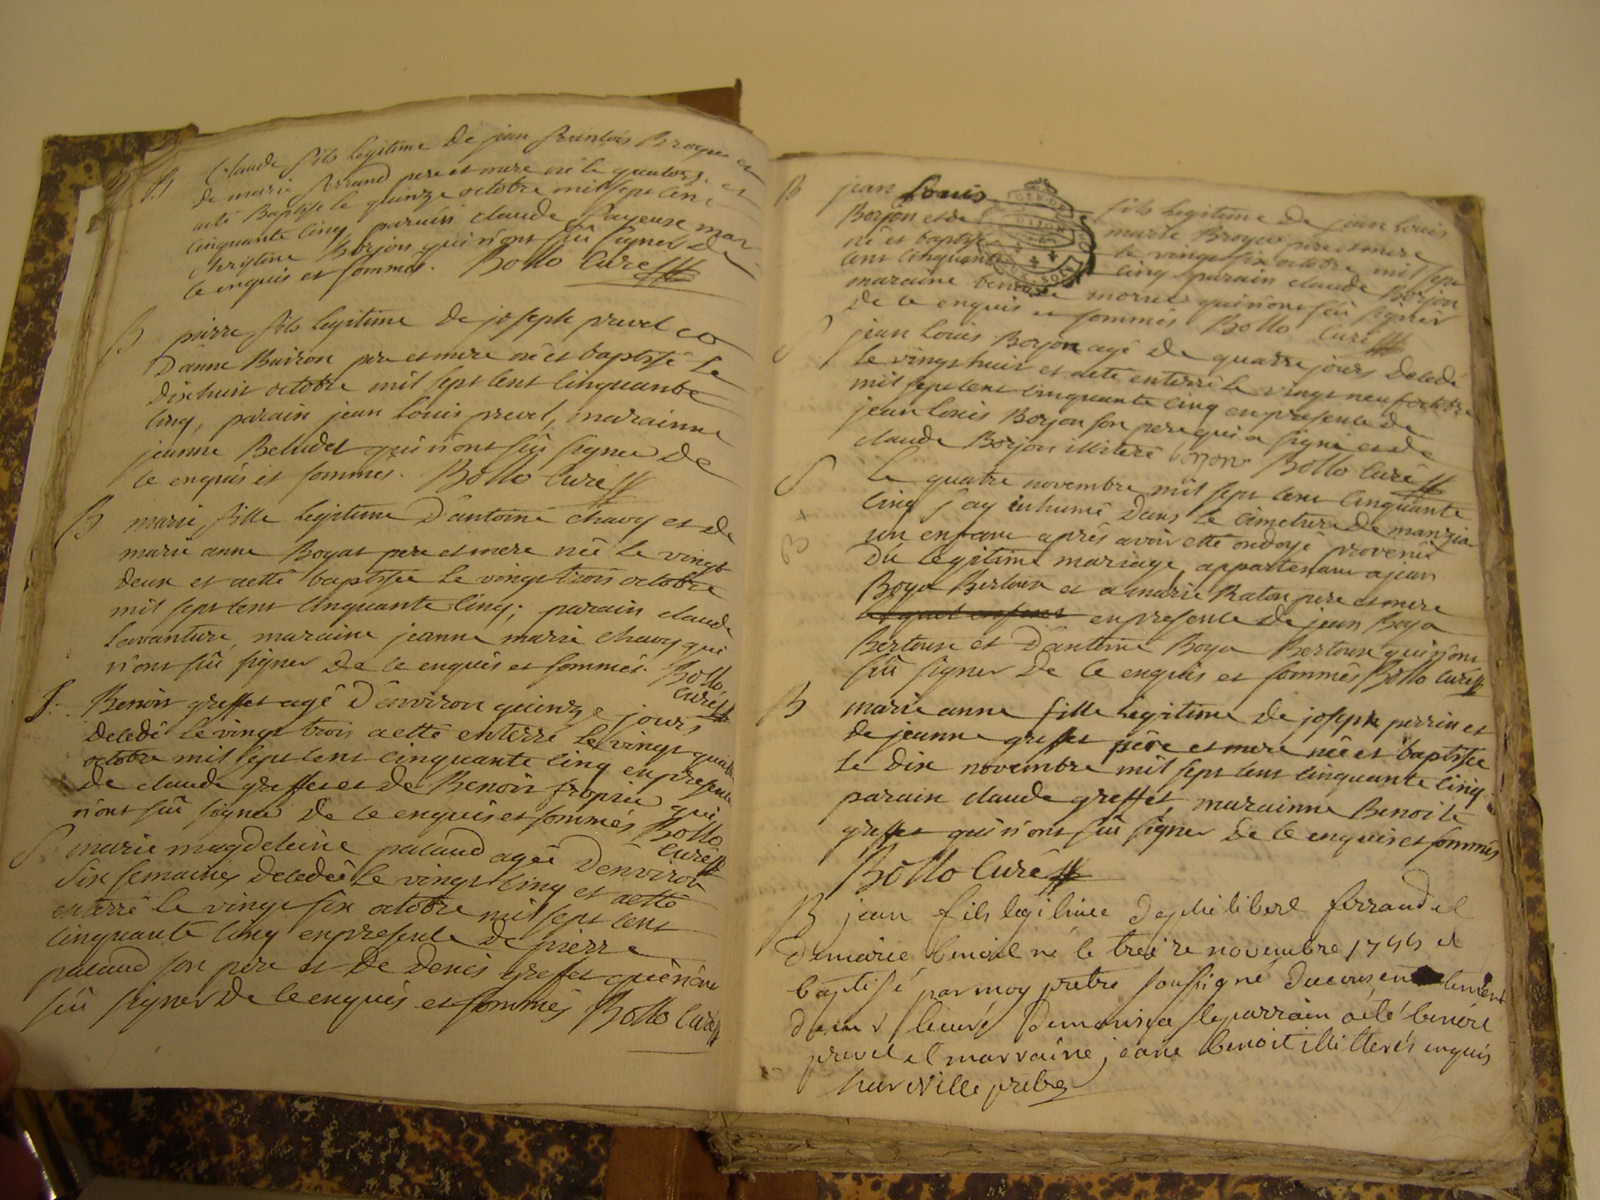 B claude fils legitime de jean francois Broyer et
de marie ferrand pere et mere né le quatorze et
aeté Baptisé le quinze octobre mil sept cent
cinquante cinq parain claude mar
christine Borjon qui n'ont sû signer de
ce enquis et sommés. Bollo Curé
B pierre fils legitime de joseph prevel et
D'anne Buiron pere et mere né et baptisé le
dixhuit octobre mil sept cent cinquante
cinq, parain jean louis prevel, marainne
jeanne Belludet qui n'ont sû signer de
ce enquis et sommes. Bollo Curé
B marie fille legitime D'antoine chavy et de
marie anne Boyat pere et mere née le vingt
deux et aetté baptisée le vingt trois octobre
mil sept cent cinquante cinq; parain claude
Lavanture maraine jeanne marie chavy qui
n'ont sû signer de ce enquis et sommés. Bollo
Curé
S. Benoit greffet agé D'environ quinze jours
decedé le vingt trois aetté enterré le vingt quatre
octobre mil sept cent cinquante cinq en presence
de claude greffet et de Benoit qui
n'ont sû signer de ce enquis et sommés Bollo
Curé
S marie magdeleine pacaud agée D'environ
six semaines decedée le vingt cinq et aetté
enterré le vingt six octobre mil sept cent
cinquante cinq en presence de pierre
pacaud son pere et de Denis greffet qui n'ont
sû signer de ce enquis et sommés Bollo Curé
B jean Louis fils legitime de jean louis
Borjon et de marie Broyer pere et mere
né et baptisé le vingt six octobre mil sept
cent cinquante cinq parain claude Borjon
maraine benoite morier qui n'ont sû signer
de ce enquis et sommés Bollo Curé
S jean louis Borjon agé de quatre jours decedé
le vingt huit et aeté enterré le vingt neuf octobre
mil sept cent cinquante cinq en presence de
jean louis Borjon son pere qui a signé et de
claude Borjon illiteré borjon Bollo Curé
S Le quatre novembre mil sept cent cinquante
cinq j'ay inhumé Dans le cimetiere de manzia
B + un enfant aprés avoir etté ondoyé provenû
Du legitime mariage appartenant a jean
Boya Bertoux et a marie Raton pere et mere
en presence de jean Boya
Bertoux et D'antoine Boya Bertoux qui n'ont
sû signer de ce enquis et sommés Bollo Curé
B marie anne fille legitime de joseph perrin et
de jeanne greffet pére et mere née et baptisée
le dix novembre mil sept cent cinquante cinq
parain claude greffet, marainne Benoite
greffet qui n'ont sû signer de ce enquis et sommés
Bollo Curé
B jean fils legitime de philibert ferrand et
de marie benoit né le treize novembre 1755 et
baptisé par moy pretre soussigné du consentement
de mr le curé de manzia le parrain a eté benoit
prevel et marraine jeane benoit illiterés enquis
hurville pretre